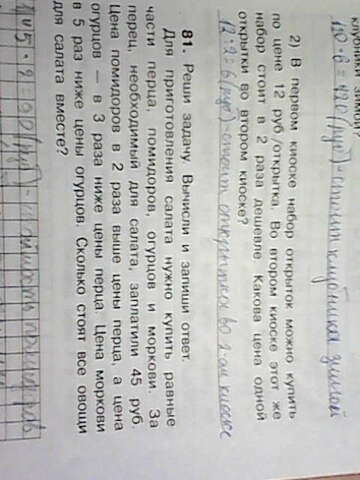 120 · 8 = 920 (руб) – стоит клубника зимой
2) В первом киоске набор открыток можно купить
по цене 12 руб./открытка. Во втором киоске этот же
набор стоит в 2 раза дешевле. Какова цена одной
открытки во втором киоске?
12 : 2 = 6 (руб) – стоит открытка во 2-ом киоске
81. Реши задачу. Вычисли и запиши ответ.
Для приготовления салата нужно купить равные
части перца, помидоров, огурцов и моркови. За
перец, необходимый для салата, заплатили 45 руб.
Цена помидоров в 2 раза выше цены перца, а цена
огурцов — в 3 раза ниже цены перца. Цена моркови
в 5 раз ниже цены огурцов. Сколько стоят все овощи
для салата вместе?
45 · 2 = 90 (руб) – помидоров